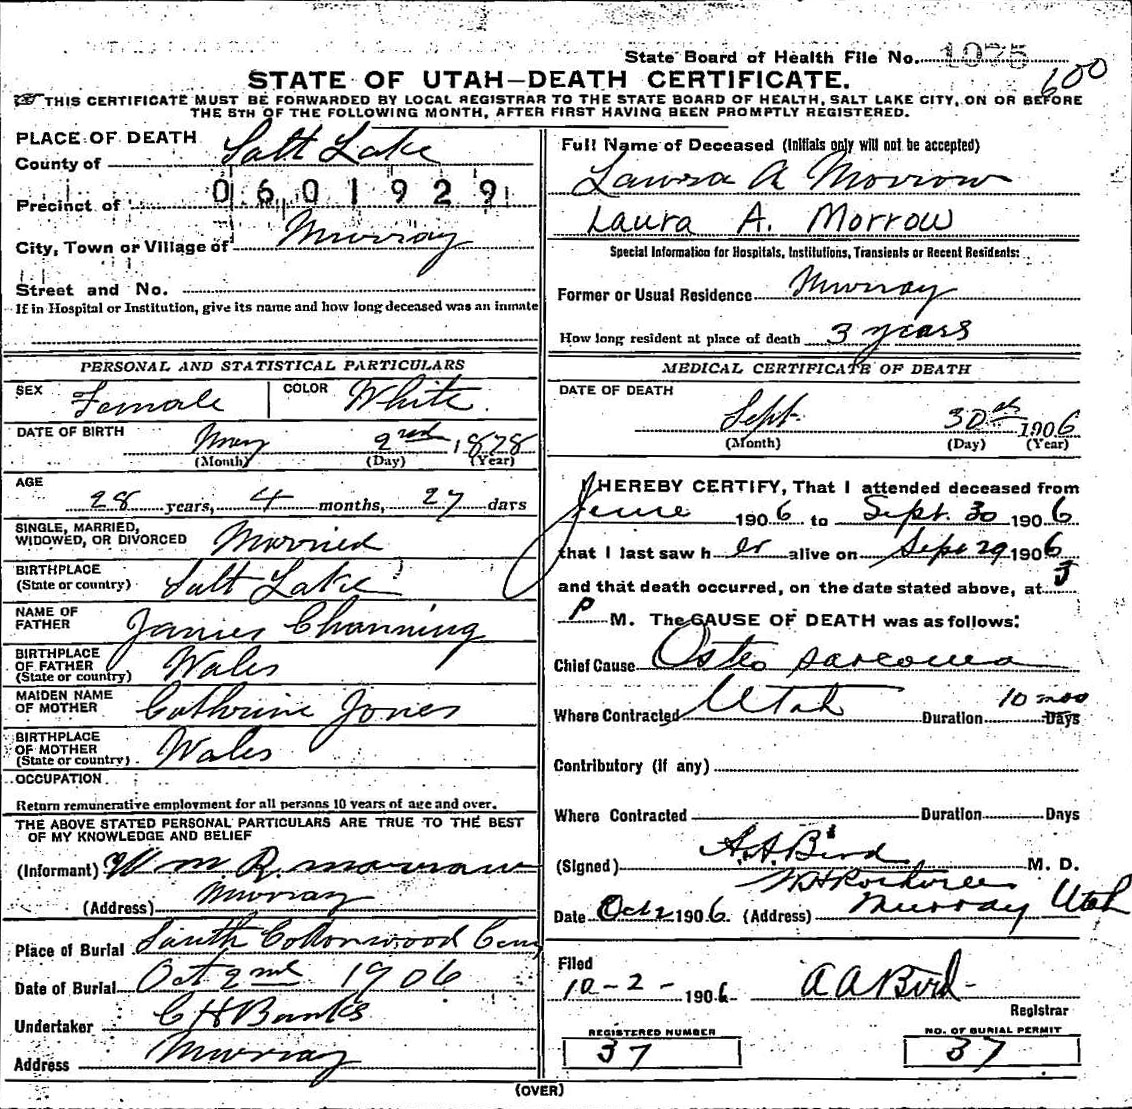 State Board of Health File No. 1075
600
STATE OF UTAH—DEATH CERTIFICATE.
THIS CERTIFICATE MUST BE FORWARDED BY LOCAL REGISTRAR TO THE STATE BOARD OF HEALTH, SALT LAKE CITY, ON OR BEFORE
THE 5TH OF THE FOLLOWING MONTH, AFTER FIRST HAVING BEEN PROMPTLY REGISTERED.
PLACE OF DEATH
County of Salt Lake
Precinct of 0601929
City, Town or Village of Murray
Street and No.
If in Hospital or Institution, give its name and how long deceased was an inmate
PERSONAL AND STATISTICAL PARTICULARS
SEX Female COLOR White
DATE OF BIRTH May 2nd 1878
(Month) (Day) (Year)
AGE
28 years, 4 months, 27 days
SINGLE, MARRIED,
WIDOWED, OR DIVORCED Married
BIRTHPLACE
(State or country) Salt Lake
NAME OF
FATHER James Channing
BIRTHPLACE
OF FATHER
(State or country) Wales
MAIDEN NAME
OF MOTHER Cathrine Jones
BIRTHPLACE
OF MOTHER
(State or country) Wales
OCCUPATION
Return remunerative employment for all persons 10 years of age and over.
THE ABOVE STATED PERSONAL PARTICULARS ARE TRUE TO THE BEST
OF MY KNOWLEDGE AND BELIEF
(Informant) Wm. R. Morrow
(Address) Murray
Place of Burial South Cottonwood Cem
Date of Burial Oct 2nd 1906
Undertaker C H Banks
Address Murray
Full Name of Deceased (Initials only will not be accepted)
Laura A Morrow
Laura A. Morrow
Special Information for Hospitals, Institutions, Transients or Recent Residents:
Former or Usual Residence Murray
How long resident at place of death 3 years
MEDICAL CERTIFICATE OF DEATH
DATE OF DEATH
Sept. 30th 1906
(Month) (Day) (Year)
I HEREBY CERTIFY, That I attended deceased from
June 1906 to Sept. 30 1906
that I last saw her alive on Sept 29 1906
and that death occurred, on the date stated above, at 5
P M. The CAUSE OF DEATH was as follows:
Chief Cause Osteo sarcoma
Where Contracted Utah Duration 10 mos Days
Contributory (If any)
Where Contracted Duration Days
(Signed) A.A. Bird M. D.
Date Oct 2 1906. (Address) Murray Utah
Filed
10-2- 1906 A A Bird
Registrar
REGISTERED NUMBER
37
NO. OF BURIAL PERMIT
37
(OVER)